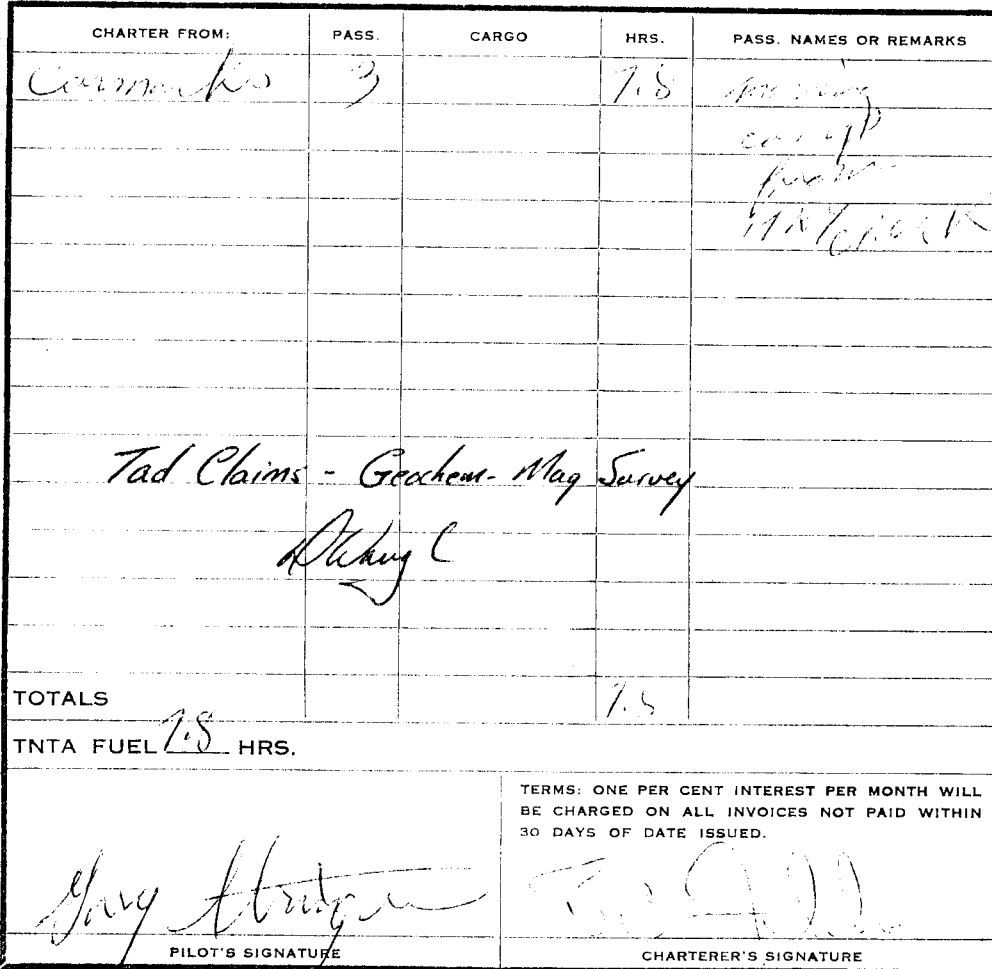 CHARTER FROM: PASS. CARGO HRS. PASS. NAMES OR REMARKS
Carmacks 3 1.8 moving
camp
from
Tad Claims - Geochem- Mag Survey
TOTALS 1.8
TNTA FUEL 1.8 HRS.
TERMS: ONE PER CENT INTEREST PER MONTH WILL
BE CHARGED ON ALL INVOICES NOT PAID WITHIN
30 DAYS OF DATE ISSUED.
Gary
PILOT'S SIGNATURE CHARTERER'S SIGNATURE